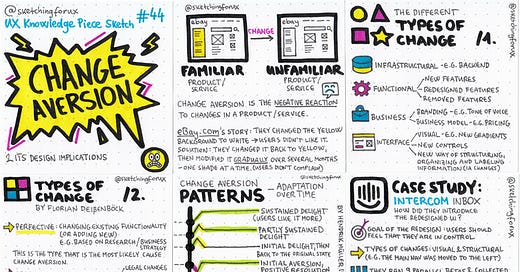 @sketchingforux
UX Knowledge Piece Sketch #44
CHANGE
AVERSION
& ITS DESIGN IMPLICATIONS
@sketchingforux
ebay
CHANGE
ebay
FAMILIAR
PRODUCT/
SERVICE
UNFAMILIAR
PRODUCT/
SERVICE
CHANGE AVERSION IS THE NEGATIVE REACTION
TO CHANGES IN A PRODUCT/SERVICE.
eBay.com's STORY: THEY CHANGED THE YELLOW
BACKGROUND TO WHITE → USERS DIDN'T LIKE IT.
SOLUTION: THEY CHANGED IT BACK TO YELLOW,
THEN MODIFIED IT GRADUALLY OVER SEVERAL MONTHS
- ONE SHADE AT A TIME. (USERS DON'T COMPLAIN)
THE DIFFERENT
TYPES OF
CHANGE /1.
@sketchingforux
INFRASTRUCTURAL - E.G. BACKEND
FUNCTIONAL
NEW FEATURES
REDESIGNED FEATURES
REMOVED FEATURES
BUSINESS
BRANDING - E.G. TONE OF VOICE
BUSINESS MODEL - E.G. PRICING
INTERFACE
VISUAL - E.G. NEW GRADIENTS
NEW CONTROLS
NEW WAY OF STRUCTURING,
ORGANIZING AND LABELING
INFORMATION (IA CHANGES)
@sketchingforux
TYPES OF
CHANGE /2.
BY FLORIAN DEIßENBÖCK
PERFECTIVE: CHANGING EXISTING FUNCTIONALITY
(OR ADDING NEW)
E.G. BASED ON RESEARCH / BUSINESS
STRATEGY
THIS IS THE TYPE THAT IS THE MOST LIKELY CAUSE
CHANGE AVERSION.
LEGAL CHANGES
CHANGE AVERSION
@sketchingforux
PATTERNS - ADAPTATION
OVER TIME
SUSTAINED DELIGHT
(USERS LIKE IT MORE)
PARTLY SUSTAINED
DELIGHT
INITIAL DELIGHT, THEN
BACK TO THE ORIGINAL STATE
INITIAL AVERSION,
POSITIVE RESOLUTION
CASE STUDY:
INTERCOM INBOX
HOW DID THEY INTRODUCE
THE REDESIGNED UI?
@sketchingforux
GOAL OF THE REDESIGN: USERS SHOULD
FEEL THAT THEY ARE IN CONTROL
TYPES OF CHANGES: VISUAL & STRUCTURAL
(E.G. THE MAIN NAV WAS MOVED TO THE LEFT)